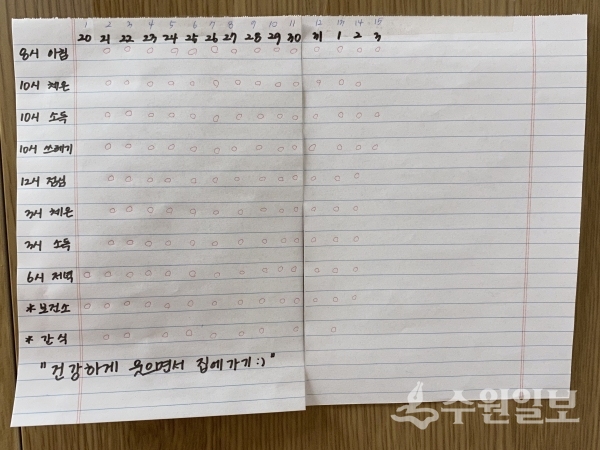 1 2 3 4 5 6 7 8 9 10 11 12 13 14 15
20 21 22 23 24 25 26 27 28 29 30 31 1 2 3
8시 아침 ○ ○ ○ ○ ○ ○ ○ ○ ○ ○ ○ ○ ○ ○
10시 체온 ○ ○ ○ ○ ○ ○ ○ ○ ○ ○ ○ ○ ○
10시 소독 ○ ○ ○ ○ ○ ○ ○ ○ ○ ○ ○ ○ ○ ○
10시 쓰레기 ○ ○ ○ ○ ○ ○ ○ ○ ○ ○ ○ ○ ○ ○
12시 점심 ○ ○ ○ ○ ○ ○ ○ ○ ○ ○ ○ ○ ○
3시 체온 ○ ○ ○ ○ ○ ○ ○ ○ ○ ○ ○ ○ ○
3시 소독 ○ ○ ○ ○ ○ ○ ○ ○ ○ ○ ○ ○ ○
6시 저녁 ○ ○ ○ ○ ○ ○ ○ ○ ○ ○ ○ ○ ○ ○
*보건소 ○ ○ ○ ○ ○ ○ ○ ○ ○ ○ ○ ○ ○ ○
* 간식 ○ ○ ○ ○ ○ ○ ○ ○ ○
"건강하게 웃으면서 집에가기:)"
수원일보